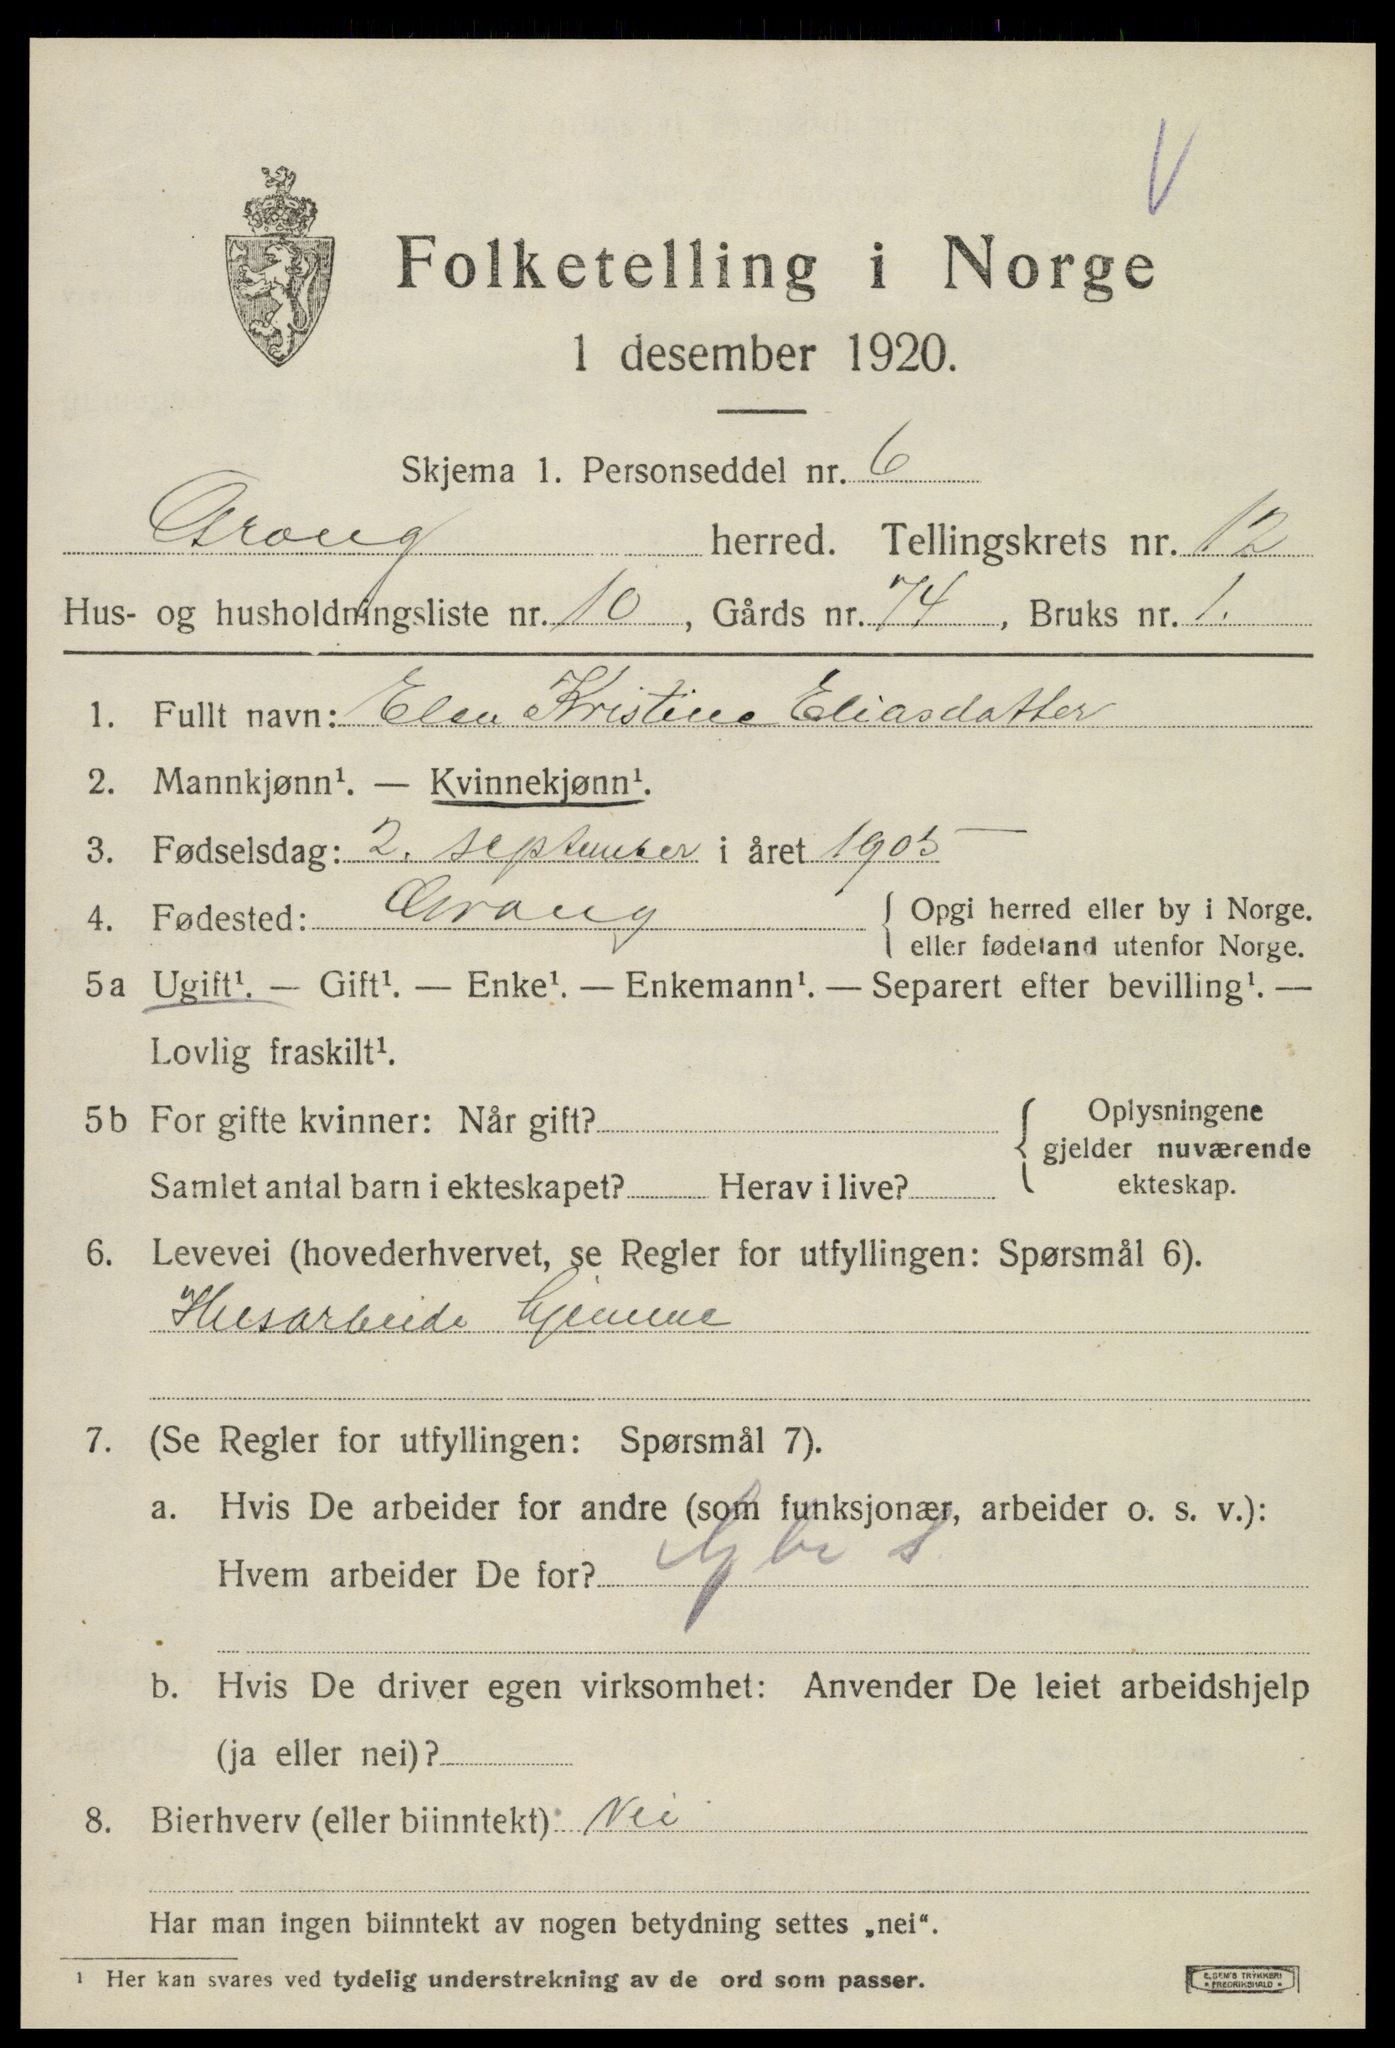 V
Folketelling i Norge
1 desember 1920.
Skjema 1. Personseddel nr. 6
Grong herred. Tellingskrets nr. 12
Hus- og husholdningsliste nr. 10, Gårds nr. 74, Bruks nr. 1.
1. Fullt navn: Elen Kristine Eliasdatter
2. Mannkjønn¹. — Kvinnekjønn¹.
3. Fødselsdag: 2. september i året 1905
4. Fødested: Grong { Opgi herred eller by i Norge.
eller fødeland utenfor Norge.
5a Ugift¹. — Gift¹. — Enke¹. — Enkemann¹. — Separert efter bevilling¹. —
Lovlig fraskilt¹.
5b For gifte kvinner: Når gift? { Oplysningene
gjelder nuværende
Samlet antal barn i ekteskapet? Herav i live? ekteskap.
6. Levevei (hovederhvervet, se Regler for utfyllingen: Spørsmål 6).
Husarbeide hjemme
7. (Se Regler for utfyllingen: Spørsmål 7).
a. Hvis De arbeider for andre (som funksjonær, arbeider o. s. v.):
Hvem arbeider De for?
b. Hvis De driver egen virksomhet: Anvender De leiet arbeidshjelp
(ja eller nei)?
8. Bierhverv (eller biinntekt): Nei
Har man ingen biinntekt av nogen betydning settes „nei“.
¹ Her kan svares ved tydelig understrekning av de ord som passer.
E. SEM'S TRYKKERI
• FREDRIKSHALD •